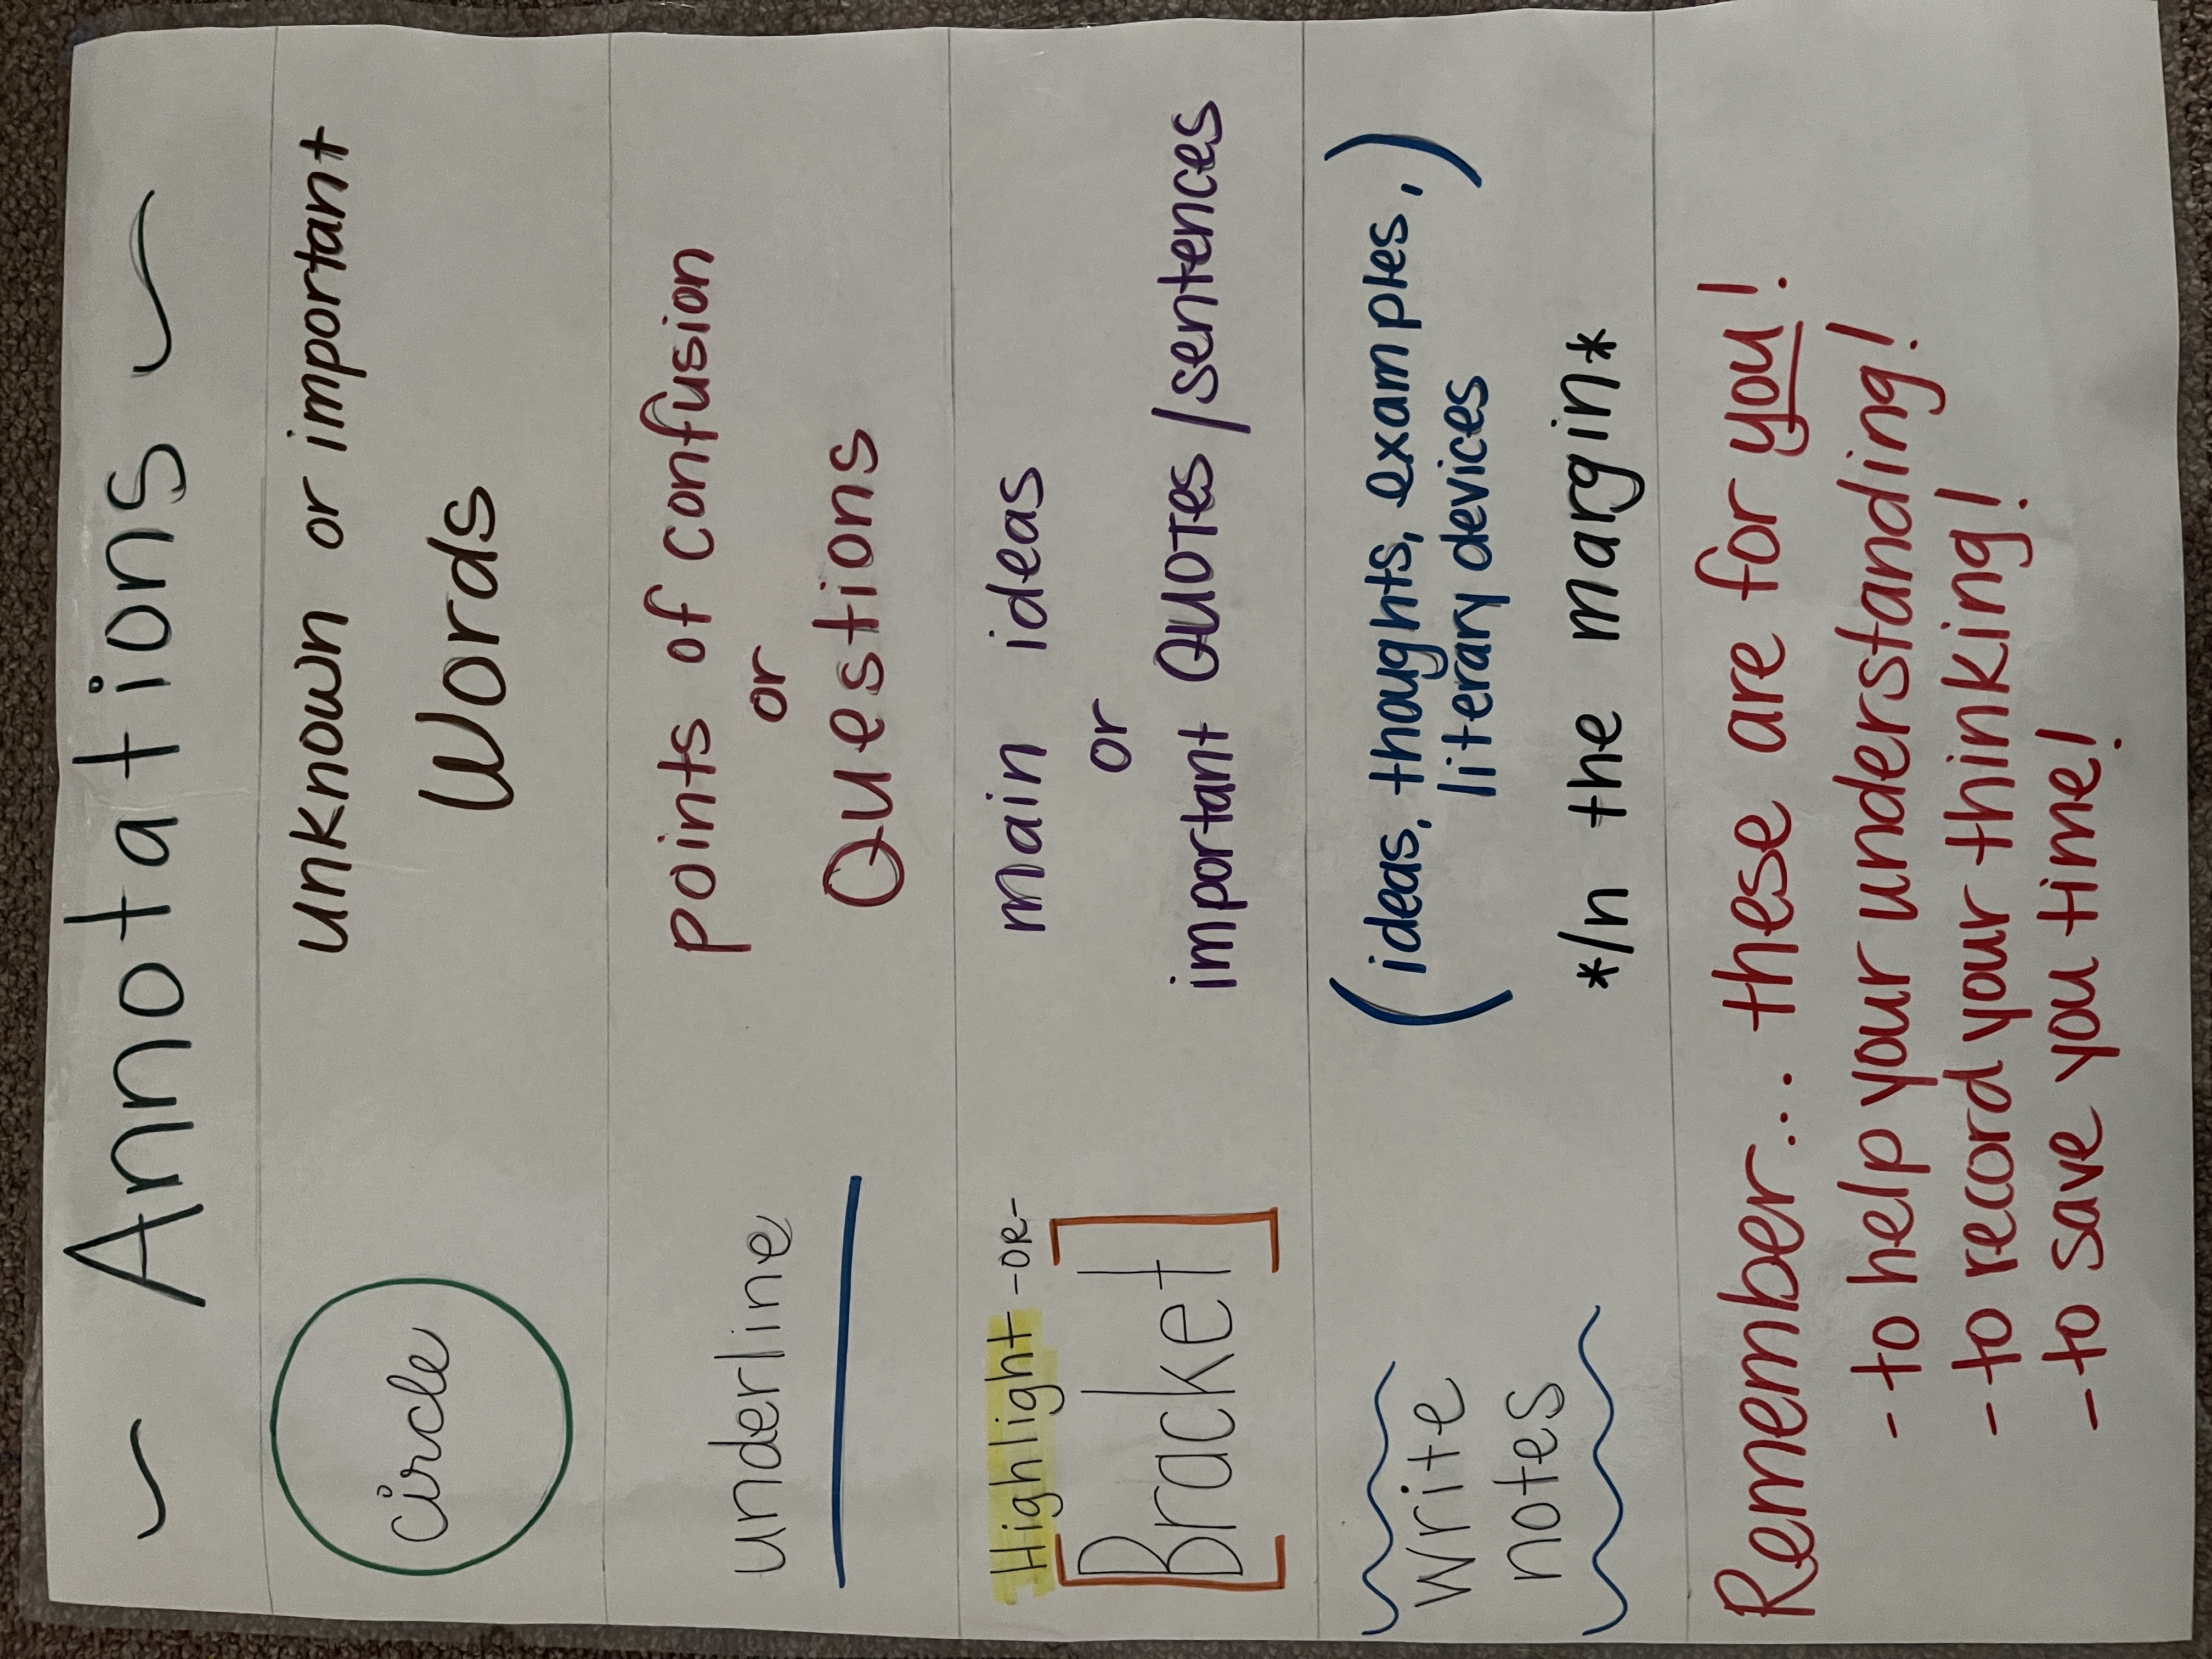 ~ Annotations ~
circle
unknown or important
Words
underline
points of confusion
or
Questions
Highlight -OR-
[Bracket]
main ideas
or
important QUOTES/sentences
write
notes
(ideas, thoughts, examples,
literary devices)
*In the margin*
Remember... these are for you!
- to help your understanding!
- to record your thinking!
- to save you time!